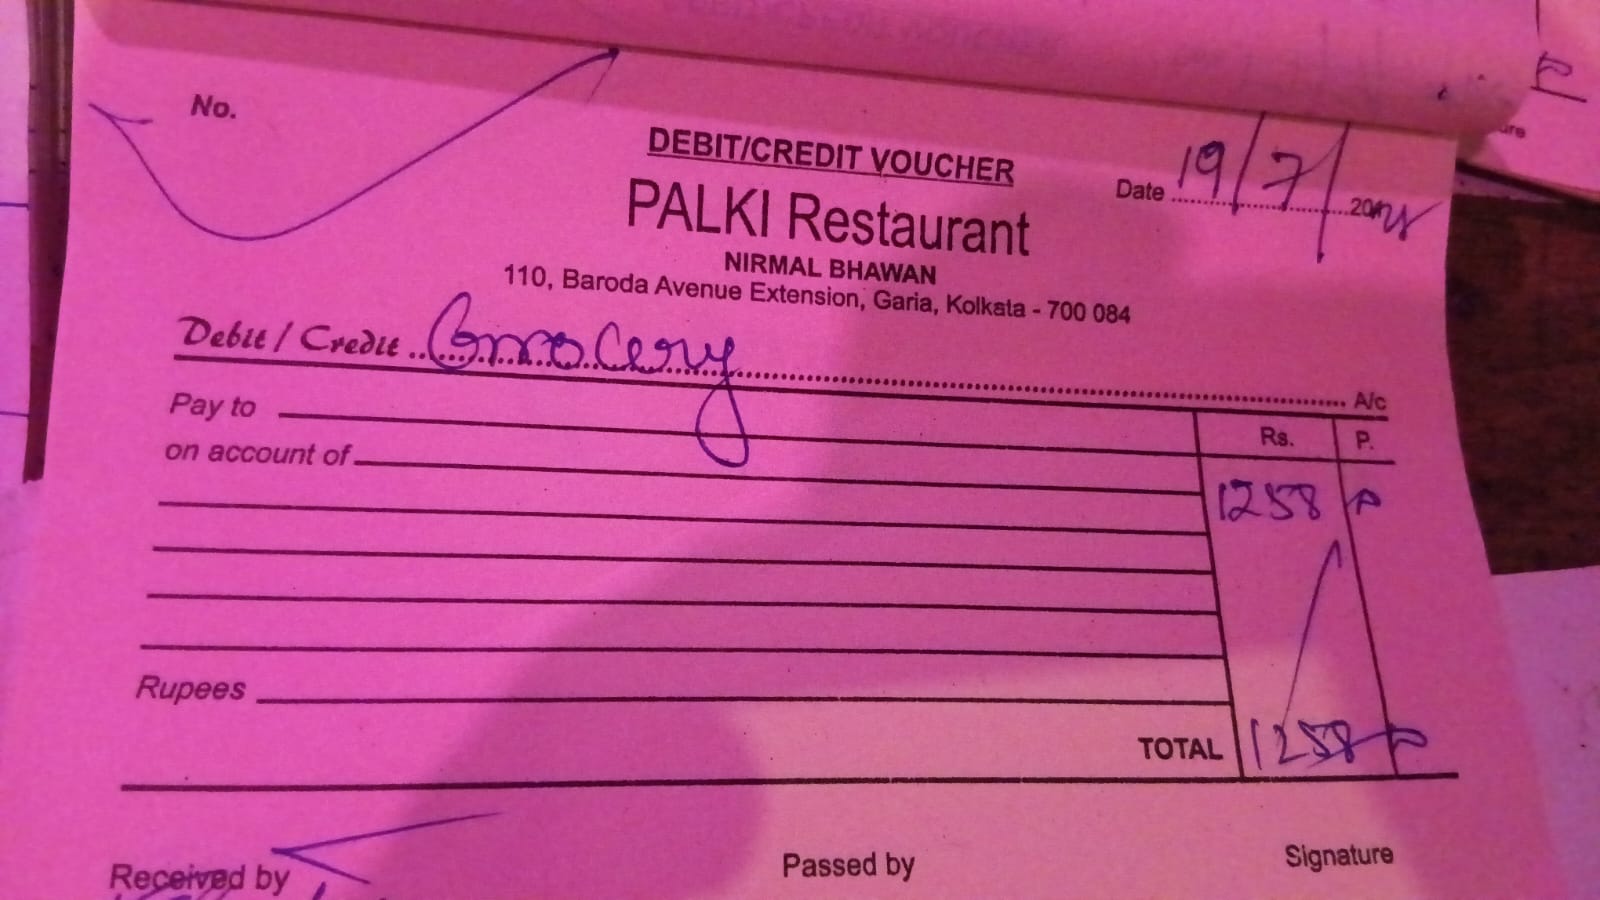 No.
DEBIT/CREDIT VOUCHER
Date 19/7/20
PALKI Restaurant
NIRMAL BHAWAN
110, Baroda Avenue Extension, Garia, Kolkata - 700 084
Debit / Credit Grrocery A/c
Pay to
Rs. P.
on account of
1258
Rupees
TOTAL 1258
Received by Passed by Signature